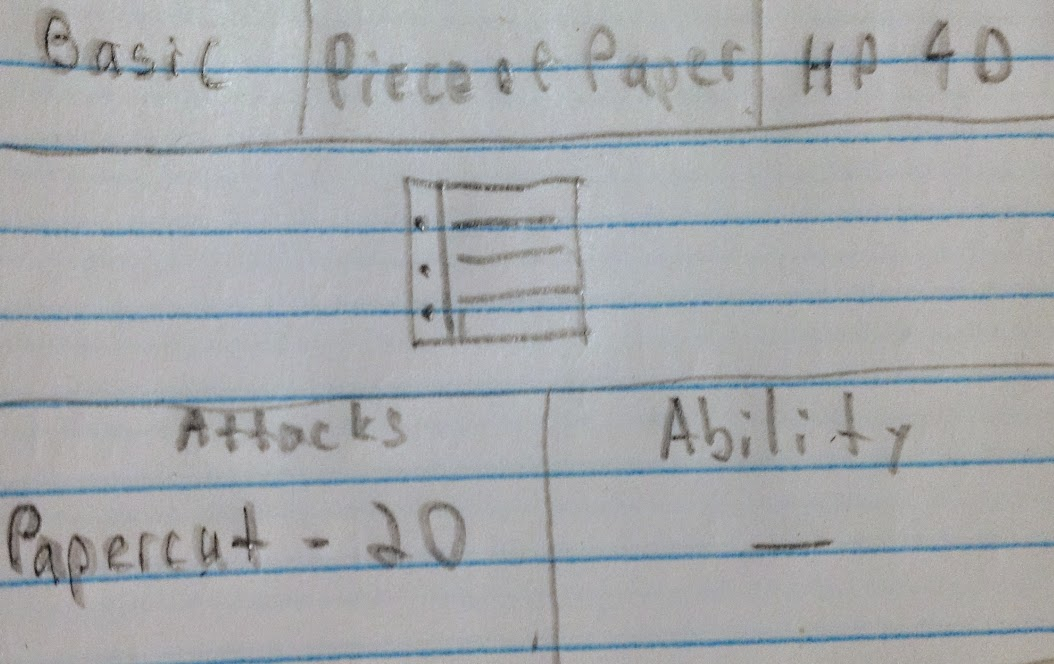 Basic Piece of Paper HP 40
Attacks Ability
Papercut - 20 —